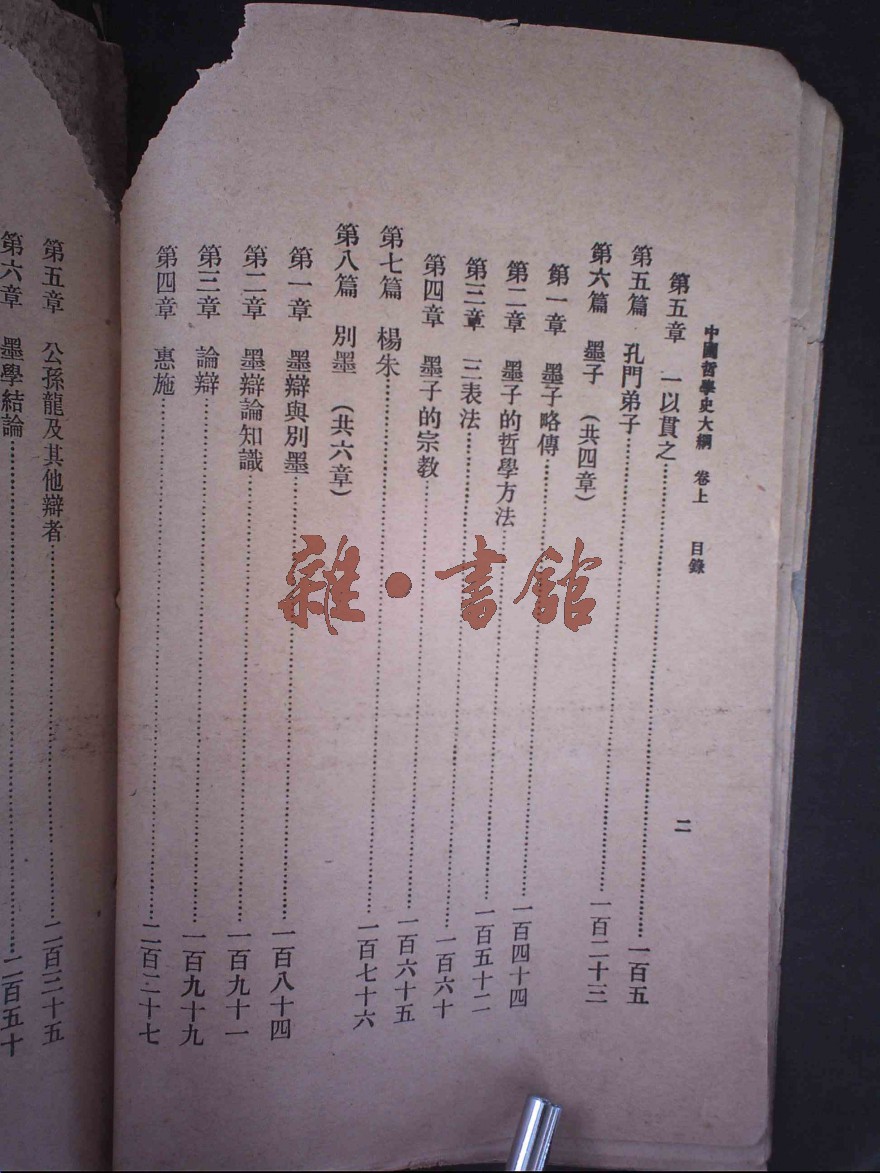 中國哲學史大綱 卷上 目錄 二
第五章 一以貫之……一百五
第五篇 孔門弟子……一百二十三
第六篇 墨子 (共四章)
第一章 墨子略傳……一百四十四
第二章 墨子的哲學方法……一百五十二
第三章 三表法……一百六十
第四章 墨子的宗教……一百六十五
第七篇 楊朱……一百七十六
第八篇 別墨 (共六章)
第一章 墨辯與別墨……一百八十四
第二章 墨辯論知識……一百九十一
第三章 論辯……一百九十九
第四章 惠施……二百二十七
第五章 公孫龍及其他辯者……二百三十五
第六章 墨學結論……二百五十
雜·書館